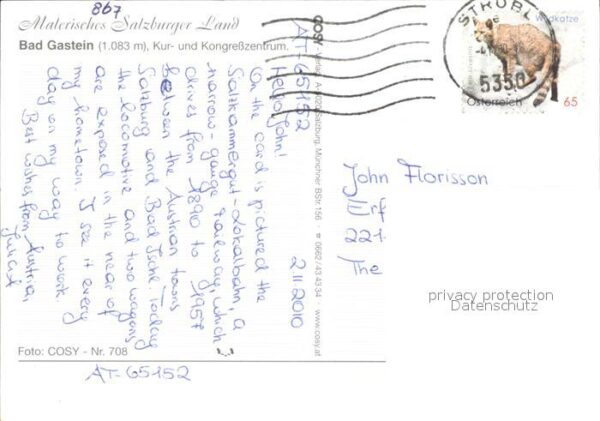 867
Malerisches Salzburger Land
Bad Gastein (1.083 m), Kur- und Kongreßzentrum.
AT-65152 2.11.2010
Hello John!
On the card is pictured the
Salzkammergut-Lokalbahn, a
narrow-gauge railway, which
drives from 1890 to 1957
between the Austrian towns
Salzburg and Bad Ischl. Today
the locomotive and two wagons
are exposed in the near of
my hometown. I see it every
day on my way to work.
Best wishes from Austria,
Foto: COSY - Nr. 708
AT-65152
COSY A-5020 Salzburg, Münchner BStr. 156 0662/43 43 34 - www.cosy.at
STROBL
5350
Wildkatze
Österreich 65
John Florisson
Erf
221
The
privacy protection
Datenschutz